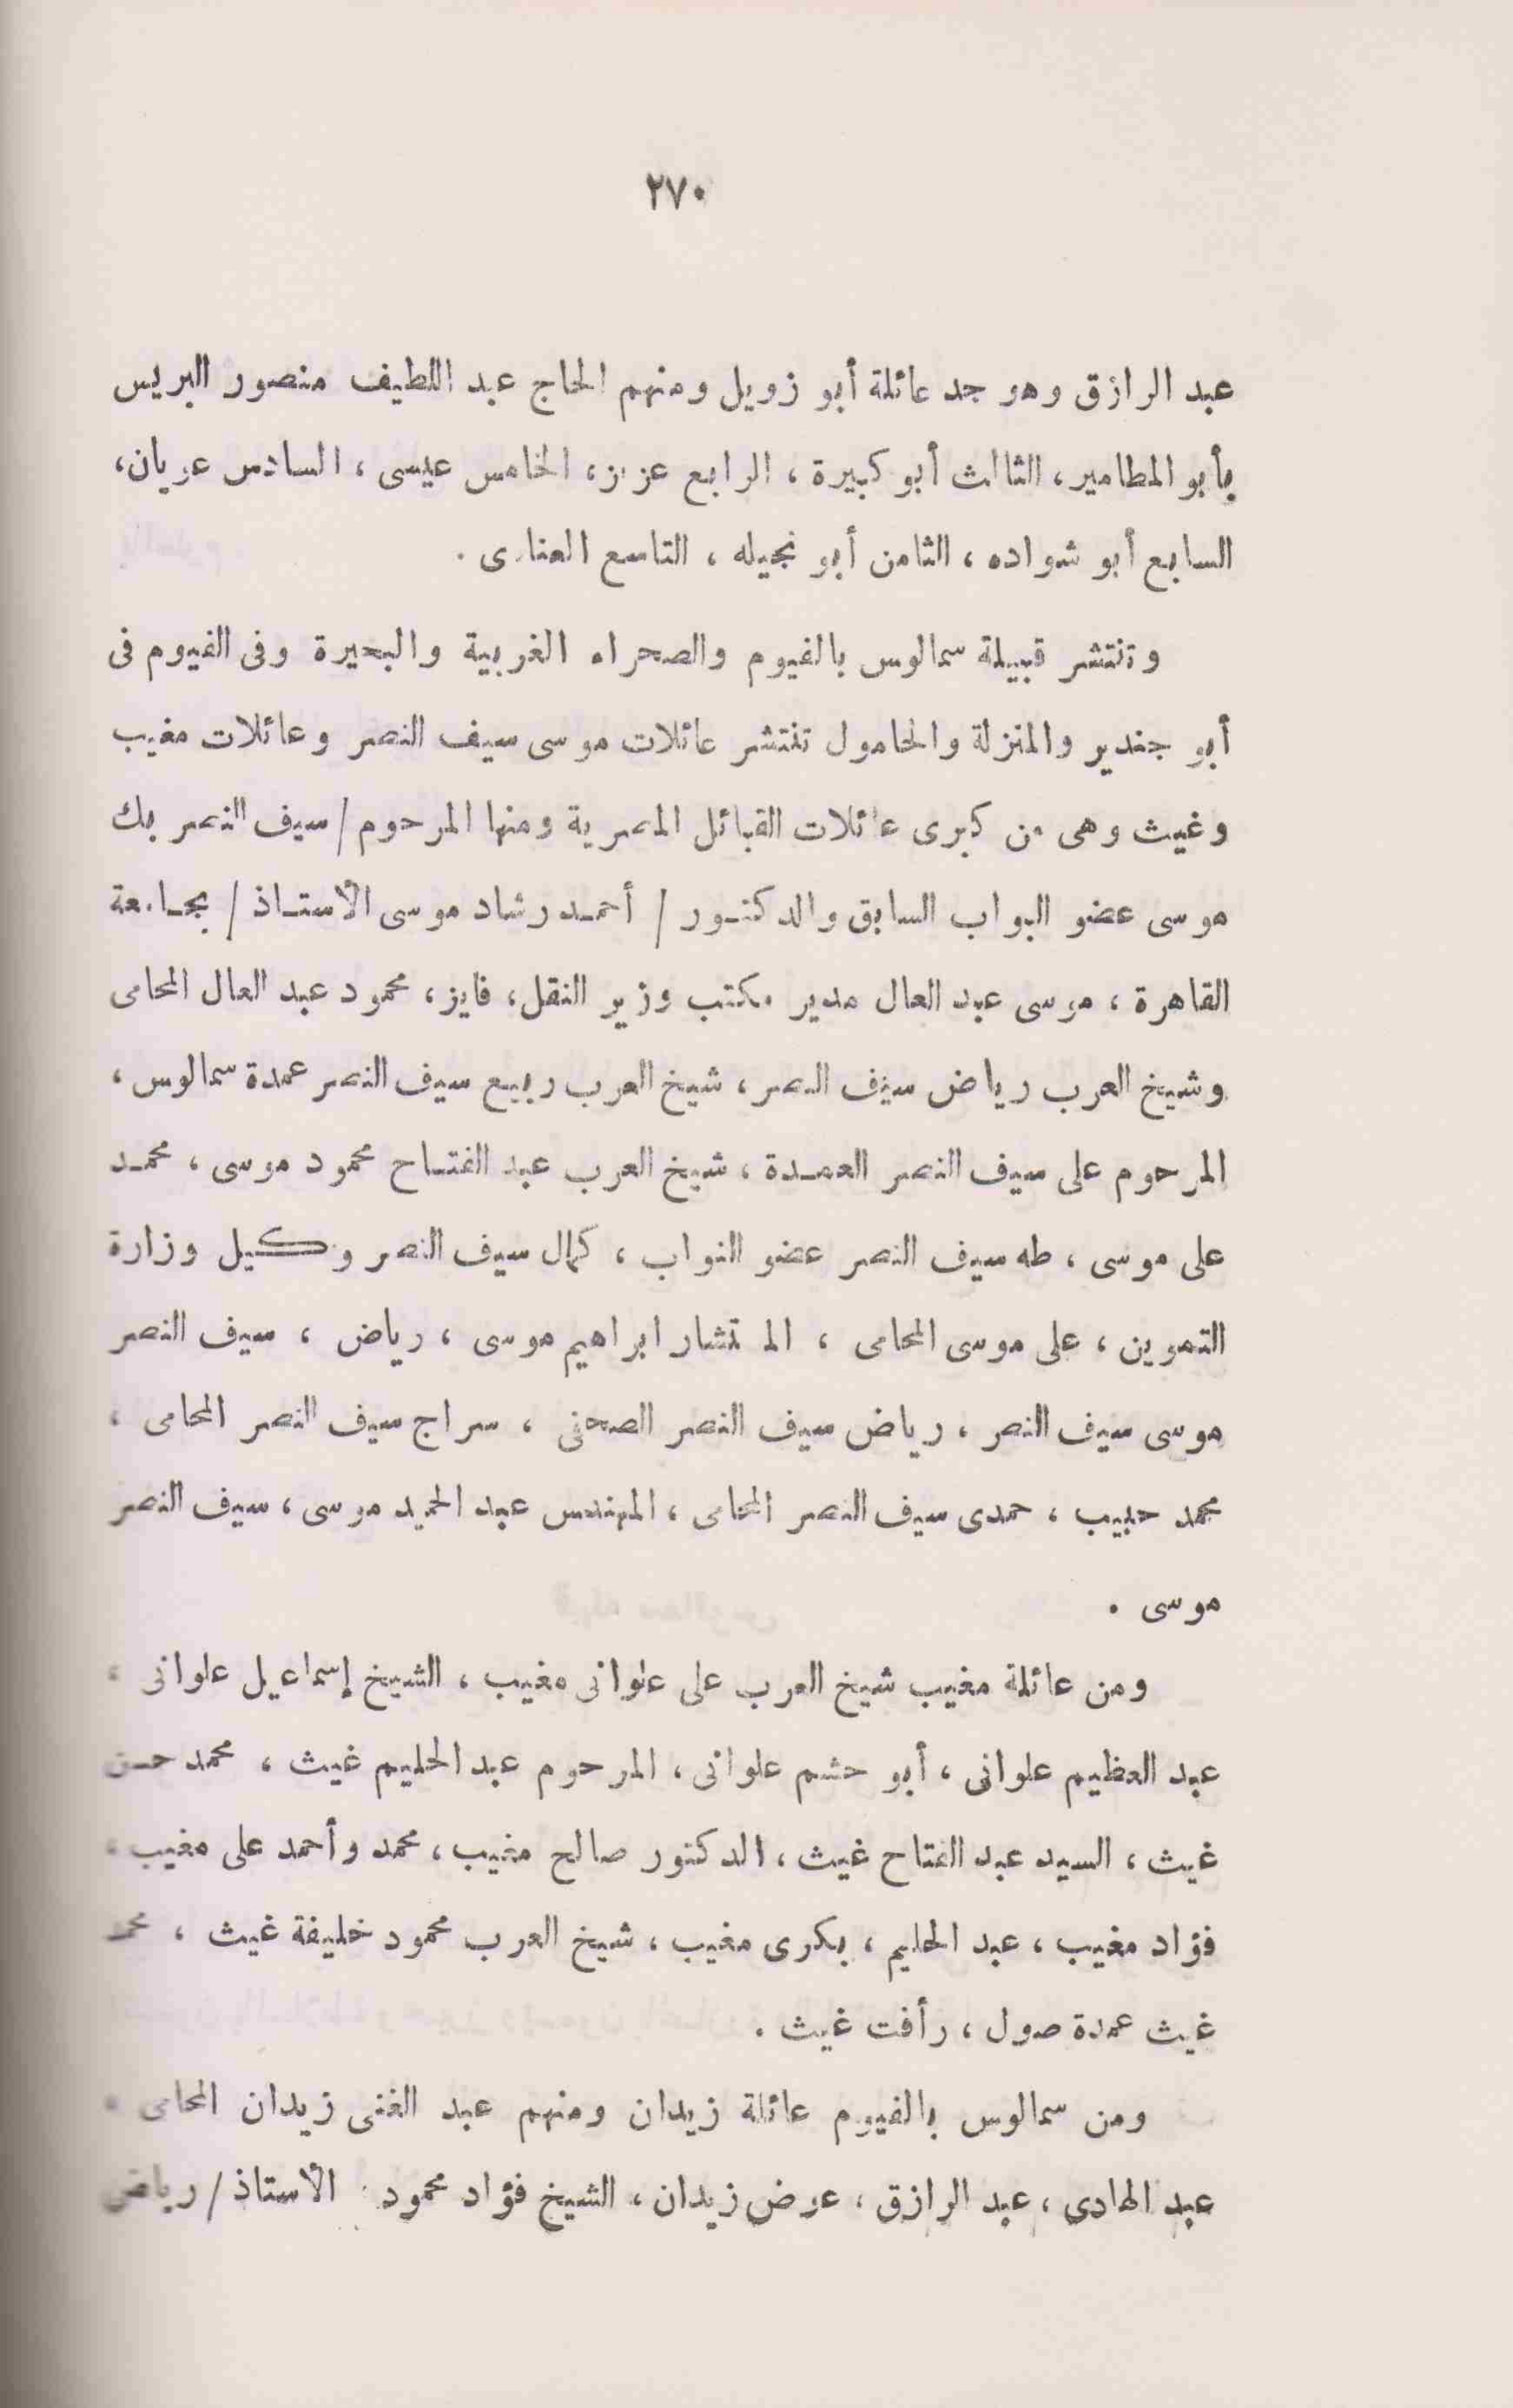 ٢٧٠
عبد الرازق وهو جد عائلة أبو زويل ومنهم الحاج عبد اللطيف منصور البريس
بأبو المطامير، الثالث أبو كبيرة ، الرابع عزيز، الخامس عيسى ، السادس عريان،
السابع أبو شواده ، الثامن أبو نجيله ، التاسع العنارى .
وتنتشر قبيلة سمالوس بالفيوم والصحراء الغربية والبحيرة وفى الفيوم فى
أبو جندير والمنزلة والحامول تنتشر عائلات موسى سيف النصر وعائلات مغيب
وغيث وهى من كبرى عائلات القبائل المصرية ومنها المرحوم / سيف النصر بك
موسى عضو البواب السابق والدكتور / أحمد رشاد موسى الأستاذ / بجامعة
القاهرة ، موسى عبد العال مدير مكتب وزير النقل، فايز، محمود عبد العال المحامى
وشيخ العرب رياض سيف النصر ، شيخ العرب ربيع سيف النصر عمدة سمالوس ،
المرحوم على سيف النصر العمدة ، شيخ العرب عبد الفتاح محمود موسى ، محمد
على موسى ، طه سيف النصر عضو النواب ، كمال سيف النصر وكيل وزارة
التموين ، على موسى المحامى ، الم تشار ابراهيم موسى ، رياض ، سيف النصر
موسى سيف النصر ، رياض سيف النصر الصحفى ، سراج سيف النصر المحامى ،
محمد حبيب ، حمدى سيف النصر المحامى ، المهندس عبد الحميد موسى ، سيف النصر
موسى .
ومن عائلة مغيب شيخ العرب على علوانى مغيب ، الشيخ إسماعيل علوانى ،
عبد العظيم علوانى ، أبو حشم علوانى ، المرحوم عبد الحليم غيث ، محمد حسن
غيث ، السيد عبد الفتاح غيث ، الدكتور صالح مغيب ، محمد وأحمد على مغيب ،
فؤاد مغيب ، عبد الحليم ، بكرى مغيب ، شيخ العرب محمود خليفة غيث ، محمد
غيث عمدة صول ، رأفت غيث .
ومن سمالوس بالفيوم عائلة زيدان ومنهم عبد الغنى زيدان المحامى ،
عبد الهادى ، عبد الرازق ، عوض زيدان ، الشيخ فؤاد محمود الأستاذ / رياض